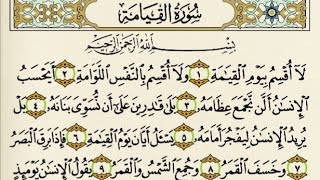 سُورَةُ القِيَامَةِ
بِسْمِ اللَّهِ الرَّحْمَٰنِ الرَّحِيمِ
لَآ أُقْسِمُ بِيَوْمِ الْقِيَٰمَةِ ١ وَلَآ أُقْسِمُ بِالنَّفْسِ اللَّوَّامَةِ ٢ أَيَحْسَبُ
الْإِنسَٰنُ أَلَّن نَّجْمَعَ عِظَامَهُۥ ٣ بَلَىٰ قَٰدِرِينَ عَلَىٰٓ أَن نُّسَوِّىَ بَنَانَهُۥ ٤ بَلْ
يُرِيدُ الْإِنسَٰنُ لِيَفْجُرَ أَمَامَهُۥ ٥ يَسْـَٔلُ أَيَّانَ يَوْمُ الْقِيَٰمَةِ ٦ فَإِذَا بَرِقَ الْبَصَرُ
٧ وَخَسَفَ الْقَمَرُ ٨ وَجُمِعَ الشَّمْسُ وَالْقَمَرُ ٩ يَقُولُ الْإِنسَٰنُ يَوْمَئِذٍ